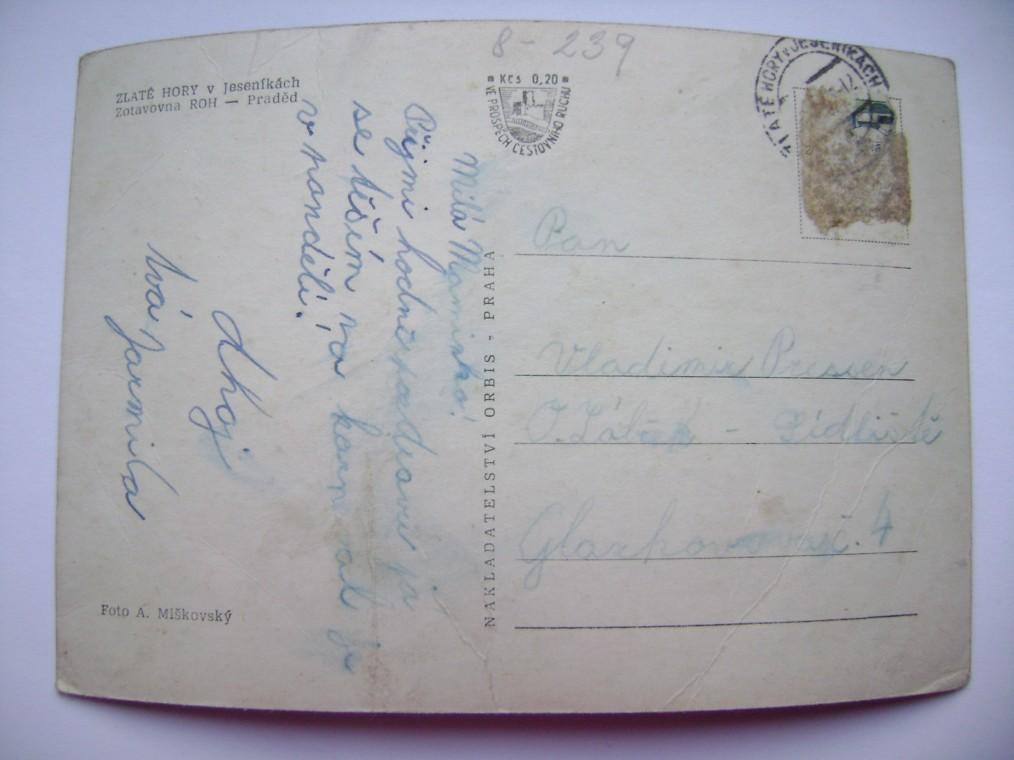 8-239
ZLATÉ HORY v Jeseníkách
Zotavovna ROH — Praděd
Kčs 0,20
VE PROSPĚCH CESTOVNÍHO RUCHU
ZLATÉ HORY V JESENÍKÁCH
Milá Maminko!
Přijmi hodně já
se těším na karneval je
v nanděli.
Ahoj
tvá Jarmila
NAKLADATELSTVÍ ORBIS - PRAHA
Pan
Vladimír
Sídliště
č. 4
Foto A. Miškovský